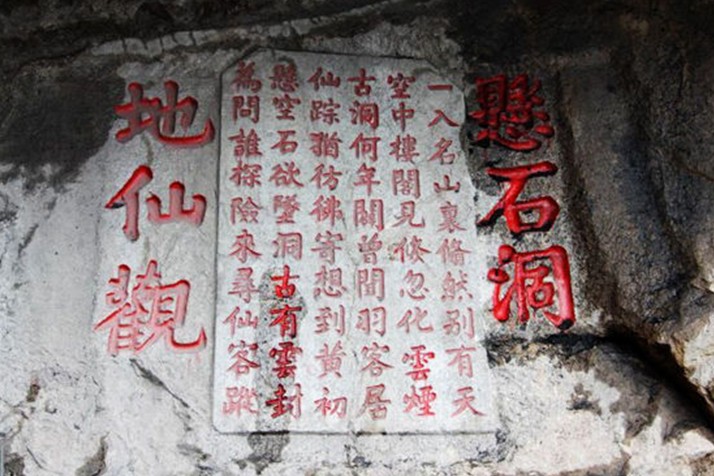 懸石洞
一入名山裏翛然别有天
空中樓閣見倏忽化雲煙
古洞何年闢曾聞羽客居
仙踪猶彷彿寄想到黄初
懸空石欲墜洞古有雲封
為問誰探險來尋仙客蹤
地仙觀